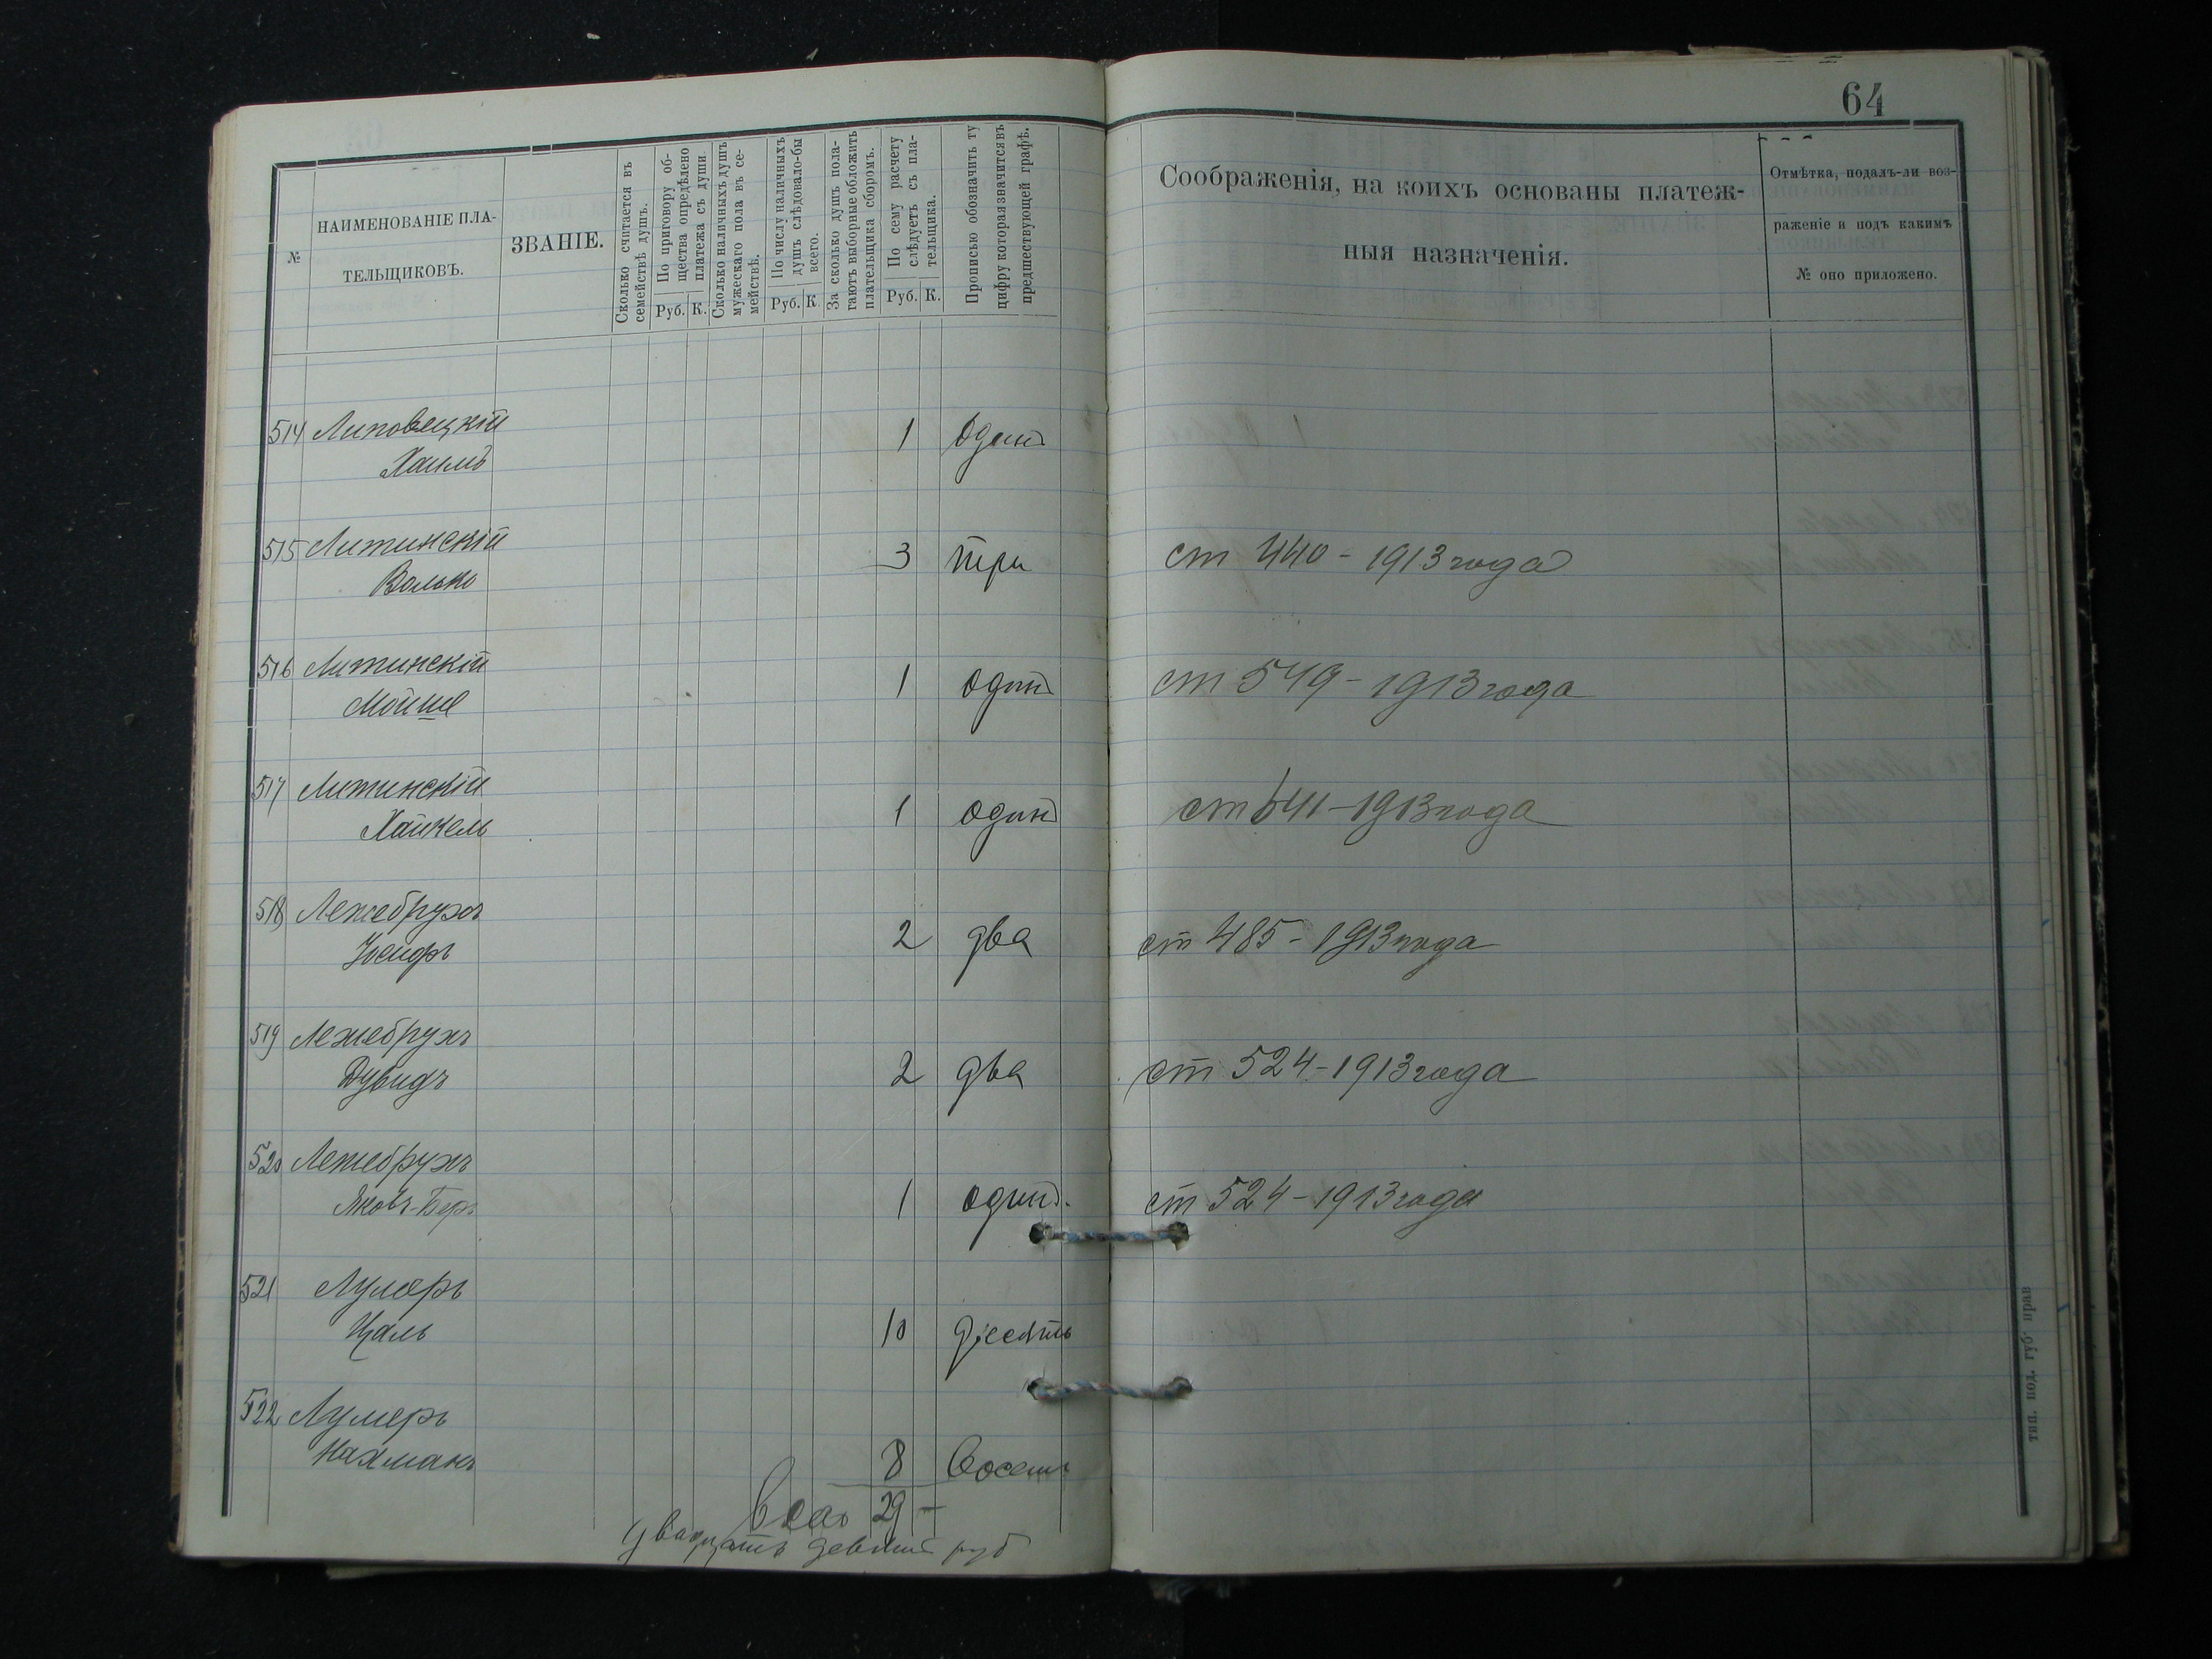 64
№
НАИМЕНОВАНІЕ ПЛА-
ТЕЛЬЩИКОВЪ.
ЗВАНІЕ.
Сколько считается въ
семействѣ душъ.
По приговору об-
щества опредѣлено
платежа съ души.
Руб. К.
Сколько наличныхъ душъ
мужескаго пола въ се-
мействѣ.
По числу наличныхъ
душъ слѣдовало-бы
всего.
Руб. К
За сколько душъ пола-
гаютъ выборные обложить
плательщика сборомъ.
По сему расчету
слѣдуетъ съ пла-
тельщика.
Руб. К.
Прописью обозначить ту
цифру которая значится въ
предшествующей графѣ.
Соображенія, на коихъ основаны платеж-
ныя назначенія.
Отмѣтка, подалъ-ли воз-
раженіе и подъ какимъ
№ оно приложено.
514 Липовецкій
Хаимъ 1 одинъ
515 Литинскій
Волько 3 три ст 440 - 1913 года
516 Литинскій
Мойше 1 одинъ ст 549 - 1913 года
517 Литинскій
Хайкель 1 одинъ ст 641 - 1913 года
518 Лежебрухъ
Іосифъ 2 два ст 485 - 1913 года
519 Лежебрухъ
Дувидъ 2 два ст 524 - 1913 года
520 Лежебрухъ
Яковъ-Беръ 1 одинъ. ст 524 - 1913 года
521 Лумеръ
Цаль 10 десять
522 Лумеръ
Нахманъ 8 восемь
Всего 29 -
двадцать девять руб
тип. под. губ прав